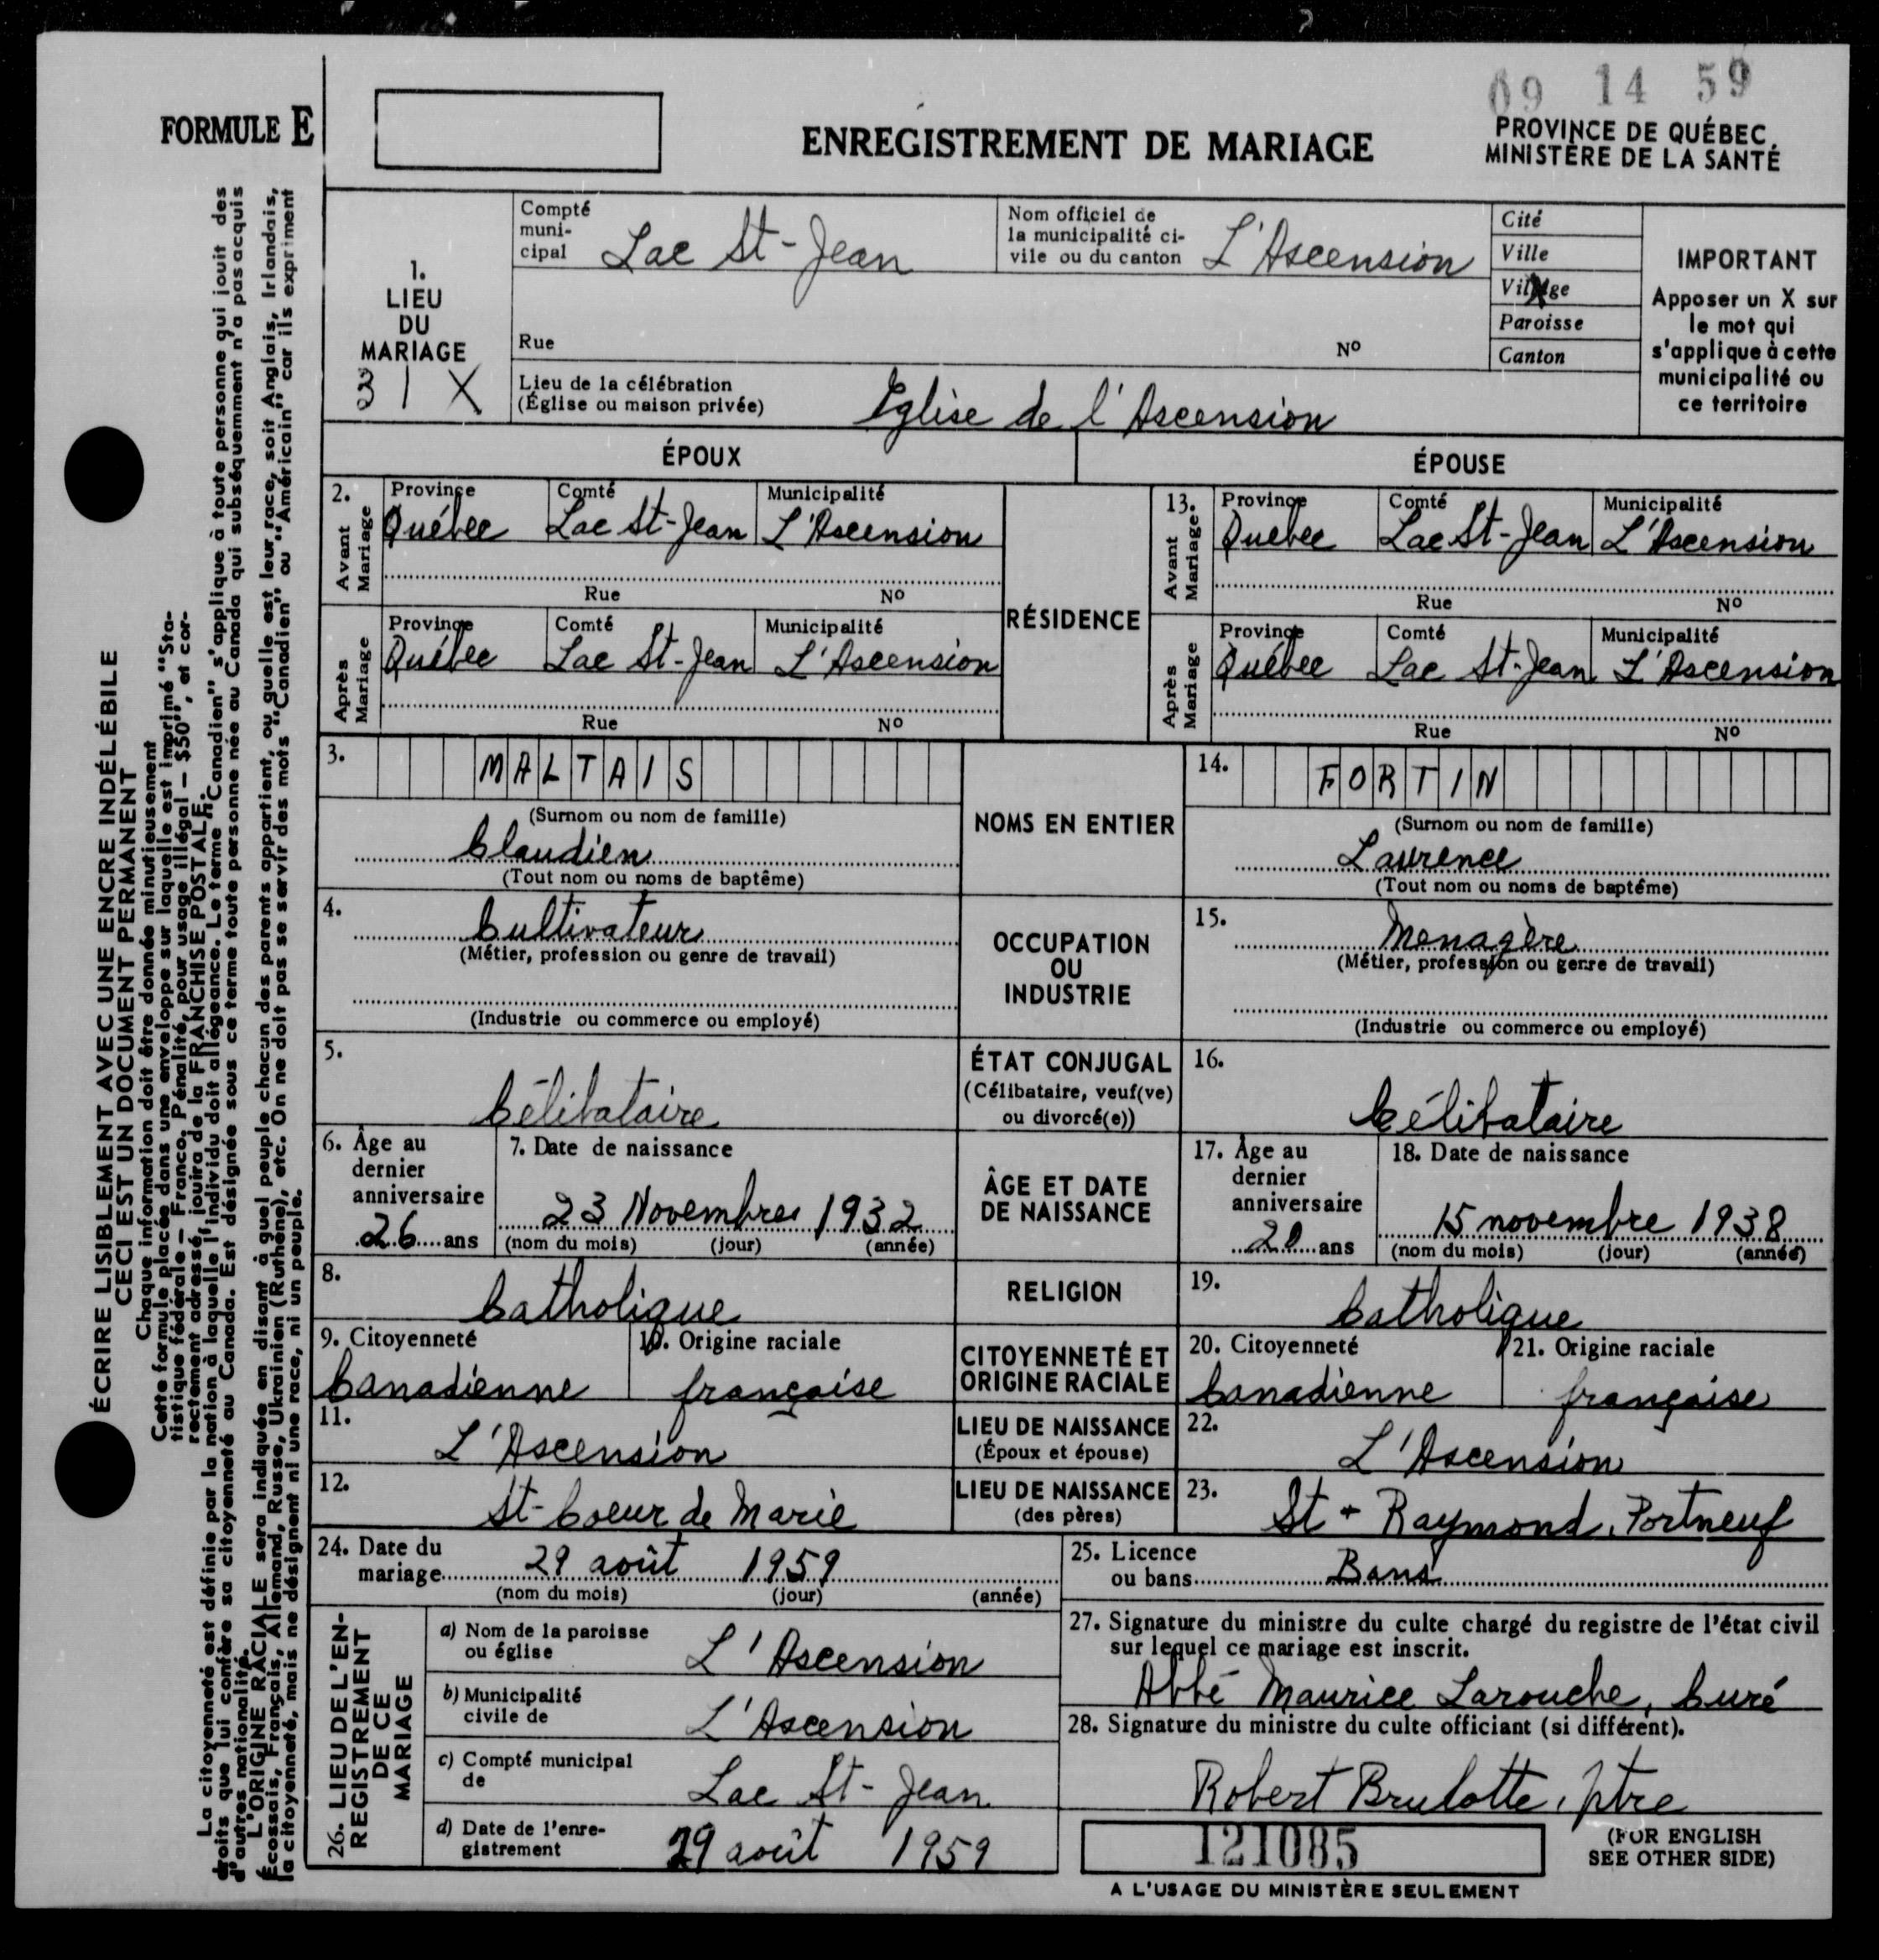 09 14 59
FORMULE E
ENREGISTREMENT DE MARIAGE
PROVINCE DE QUÉBEC
MINISTÈRE DE LA SANTÉ
1.
LIEU
DU
MARIAGE
31 X
Compté
muni-
cipal
Lac St-Jean
Nom officiel de
la municipalité ci-
vile ou du canton
L'Ascension
Cité
Ville
Village
Paroisse
Canton
IMPORTANT
Apposer un X sur
le mot qui
s'applique à cette
municipalité ou
ce territoire
Rue
No
Lieu de la célébration
(Église ou maison privée)
Eglise de l'Ascension
ÉPOUX
ÉPOUSE
2.
Avant
Mariage
Province
Comté
Municipalité
Québec Lac St-Jean L'Ascension
Rue
No
Après
Mariage
Province
Comté
Municipalité
Québec Lac St-Jean L'Ascension
Rue
No
RÉSIDENCE
13.
Avant
Mariage
Province
Comté
Municipalité
Quebec Lac St-Jean L'Ascension
Rue
No
Après
Mariage
Province
Comté
Municipalité
Québec Lac St-Jean L'Ascension
Rue
No
3.
MALTAIS
(Surnom ou nom de famille)
Claudien
(Tout nom ou noms de baptême)
NOMS EN ENTIER
14.
FORTIN
(Surnom ou nom de famille)
Laurence
(Tout nom ou noms de baptême)
4.
Cultivateur
(Métier, profession ou genre de travail)
(Industrie ou commerce ou employé)
OCCUPATION
OU
INDUSTRIE
15.
Menagère
(Métier, profession ou genre de travail)
(Industrie ou commerce ou employé)
5.
Célibataire
ÉTAT CONJUGAL
(Célibataire, veuf(ve)
ou divorcé(e))
16.
Célibataire
6. Âge au
dernier
anniversaire
26 ans
7. Date de naissance
23 Novembre 1932
(nom du mois) (jour) (année)
ÂGE ET DATE
DE NAISSANCE
17. Âge au
dernier
anniversaire
20 ans
18. Date de naissance
15 novembre 1938
(nom du mois) (jour) (année)
8.
Catholique
RELIGION
19.
Catholique
9. Citoyenneté
Canadienne
10. Origine raciale
française
CITOYENNETÉ ET
ORIGINE RACIALE
20. Citoyenneté
Canadienne
21. Origine raciale
française
11.
L'Ascension
LIEU DE NAISSANCE
(Époux et épouse)
22.
L'Ascension
12.
St-Coeur de Marie
LIEU DE NAISSANCE
(des pères)
23.
St-Raymond, Portneuf
24. Date du
mariage
29 août 1959
(nom du mois) (jour) (année)
25. Licence
ou bans
Bans
26. LIEU DE L'EN-
REGISTREMENT
DE CE
MARIAGE
a) Nom de la paroisse
ou église
L'Ascension
b) Municipalité
civile de
L'Ascension
c) Compté municipal
de
Lac St-Jean
d) Date de l'enre-
gistrement
29 août 1959
27. Signature du ministre du culte chargé du registre de l'état civil
sur lequel ce mariage est inscrit.
Abbé Maurice Larouche, Curé
28. Signature du ministre du culte officiant (si différent).
Robert Brulotte, ptre
121085
A L'USAGE DU MINISTÈRE SEULEMENT
(FOR ENGLISH
SEE OTHER SIDE)
ÉCRIRE LISIBLEMENT AVEC UNE ENCRE INDÉLÉBILE
CECI EST UN DOCUMENT PERMANENT
Chaque information doit être donnée minutieusement
Cette formule placée dans une enveloppe sur laquelle est imprimé "Sta-
tistique fédérale — Franco. Pénalité, pour usage illégal — $50", et cor-
rectement adressé, jouira de la FRANCHISE POSTALE.
La citoyenneté est définie par la nation à laquelle l'individu doit allégeance. Le terme "Canadien" s'applique à toute personne qui jouit des
droits que lui confère sa citoyenneté au Canada. Est désignée sous ce terme toute personne née au Canada qui subséquemment n'a pas acquis
d'autres nationalité.
L'ORIGINE RACIALE sera indiquée en disant à quel peuple chacun des parents appartient, ou quelle est leur race, soit Anglais, Irlandais,
Écossais, Français, Allemand, Russe, Ukrainien (Ruthène), etc. On ne doit pas se servir des mots "Canadien" ou "Américain" car ils expriment
la citoyenneté, mais ne désignent ni une race, ni un peuple.